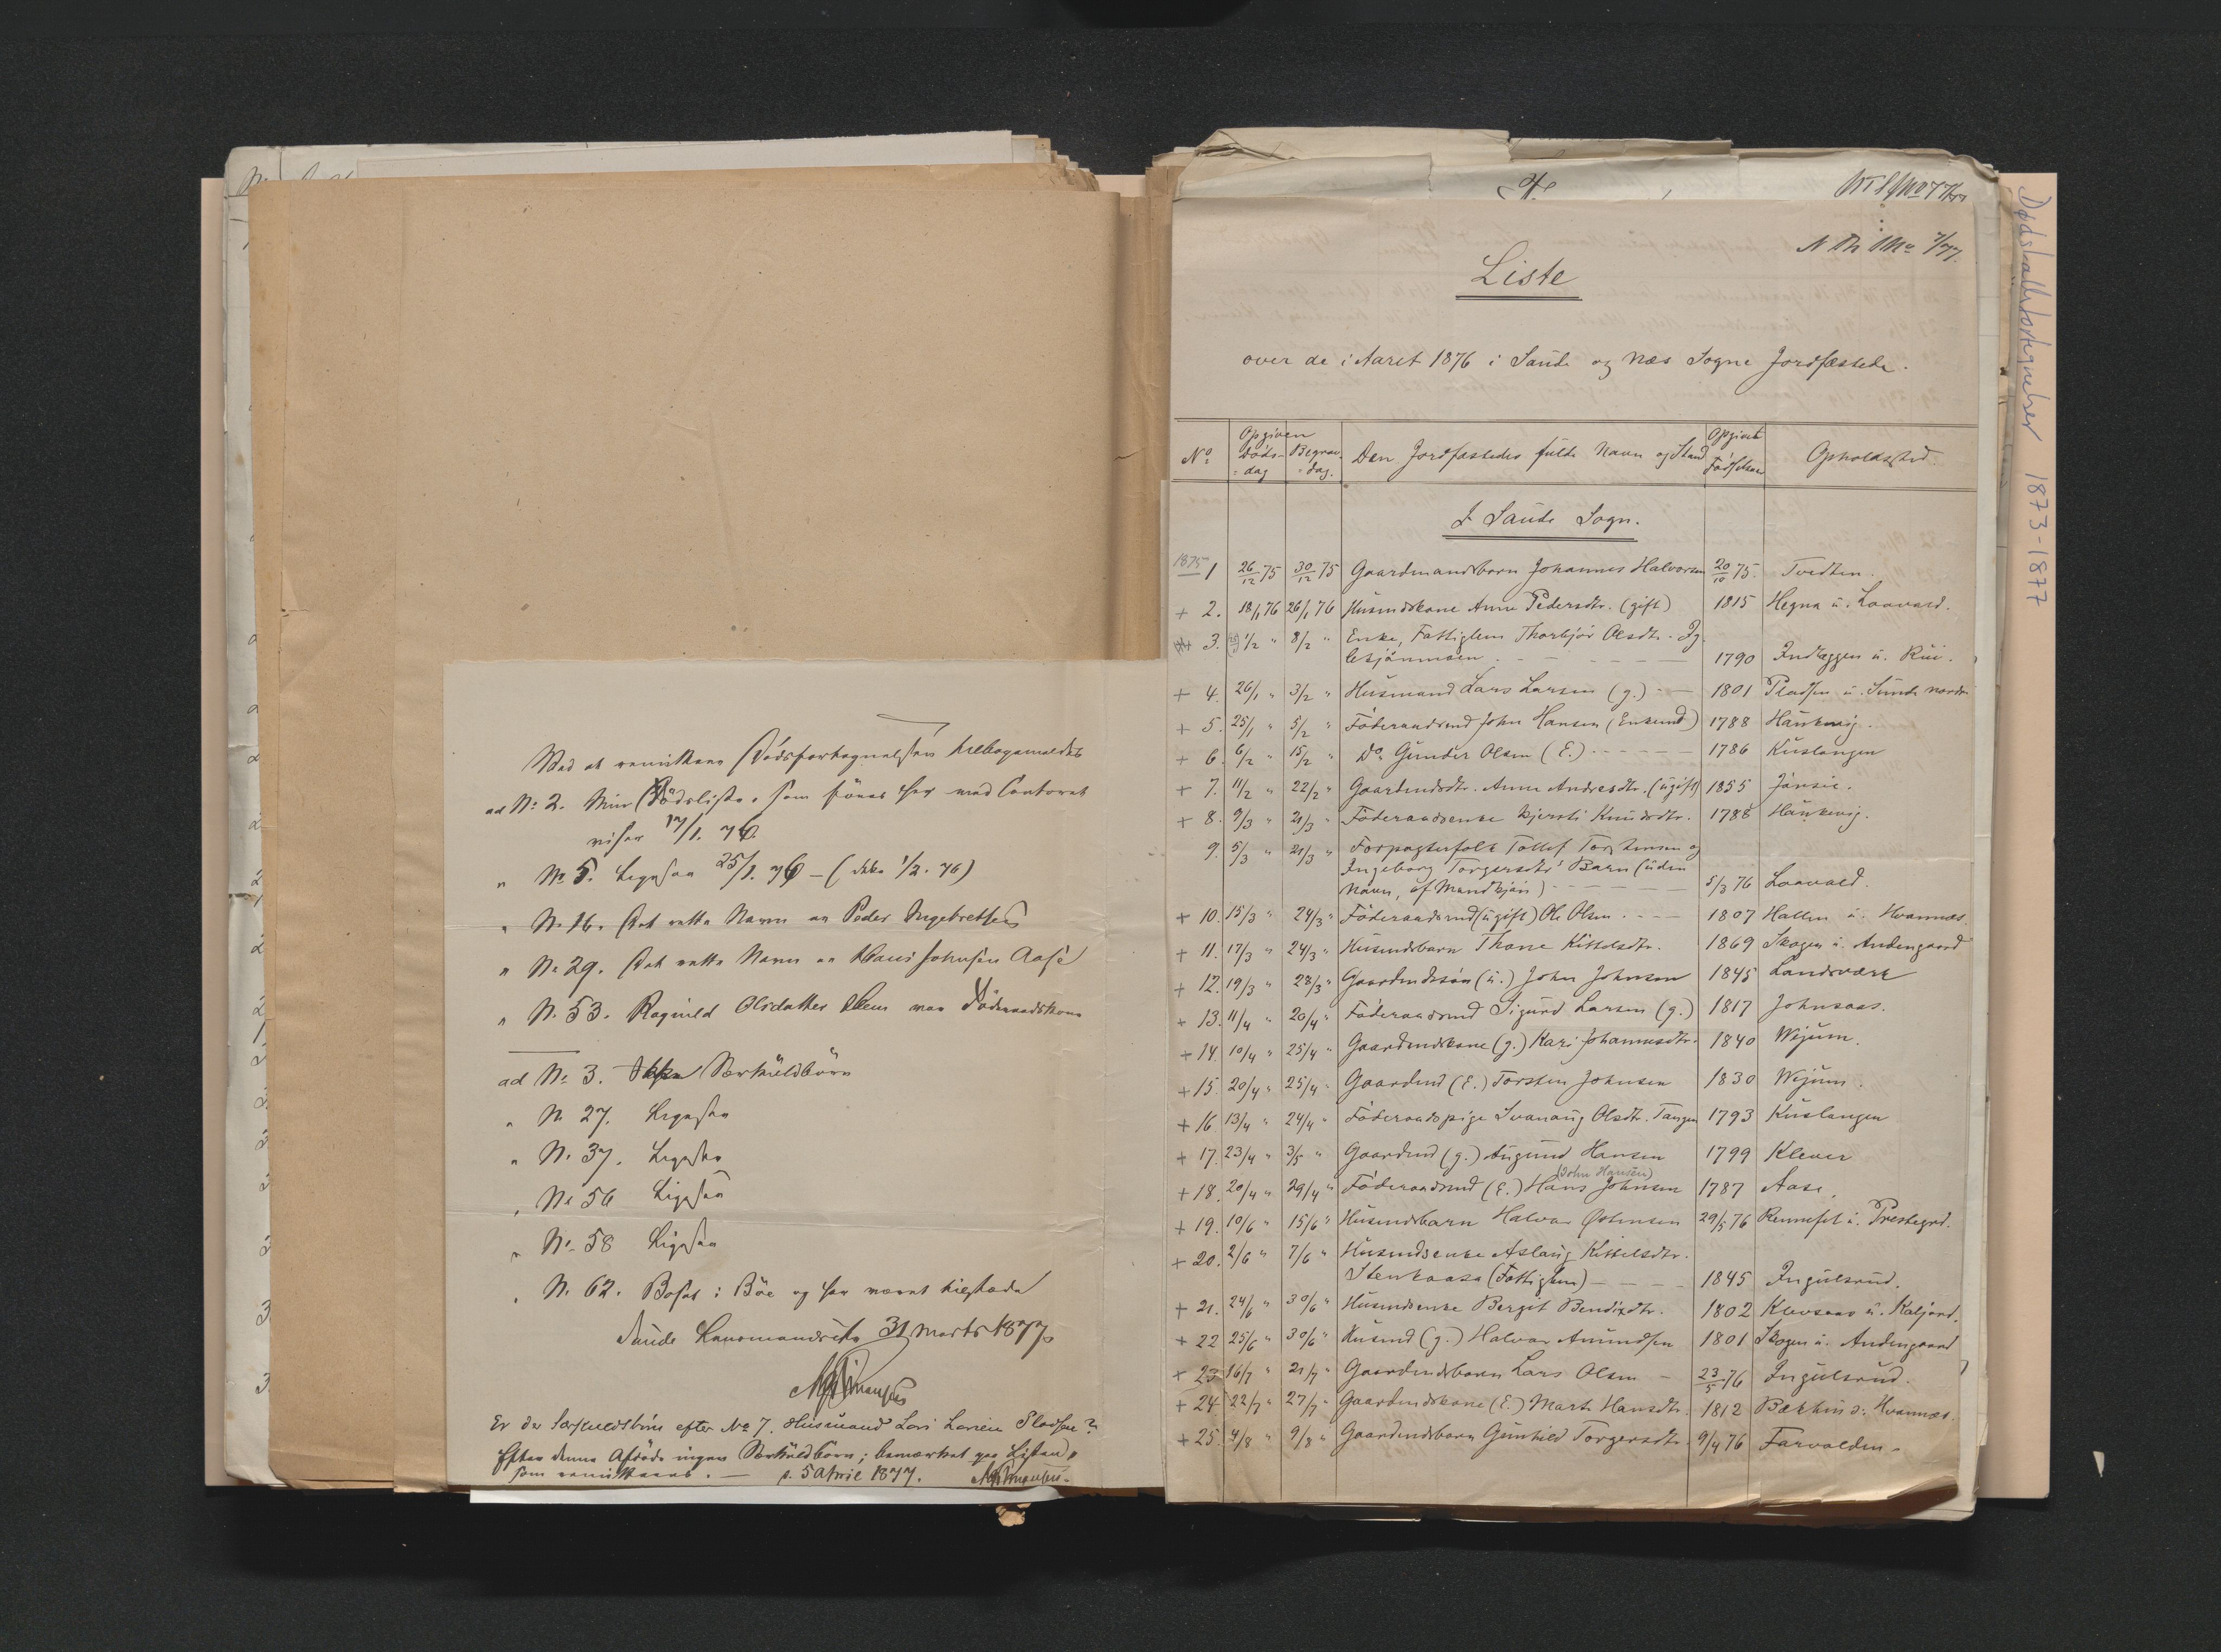 Ved at remittere Dødsfortegnelsen tilbagemeldes
ad No 2. Min Dødsliste, som føres her ved Contoret
viser 17/1. 76.
" No 5. Ligesaa 25/1. 76 – (ikke 1/2. 76)
" No 16. Det rette Navn er Peder Ingebretsen
" No 29. Det rette Navn er Hans Johnsen Aase
" No 53. Ragnild Olsdatter var Föderaadskone
ad No 3. Særkuldbörn
" No 27. Ligesaa
" No 37. Ligesaa
" No 56 Ligesaa
" No 58 Ligesaa
" No 62. Bosat i Böe og har været tilstede
Saude Lensmandsk. 31 Marts 1877
Er der Særkuldsbörn efter No 7. Husmand Lars Larsen Pladsen?
Efter denne Afdöde ingen Særkuldbörn; bemærket paa Listen,
som remitteres. — 5 April 1877.
Dødsfallsfortegnelser 1873-1877
7/77.
Liste
over de i Aaret 1876 i Saude og Næs Sogne Jordfæstede.
No Opgiven Döds-dag Begrav.-dag. Den Jordfæstedes fulde Navn og Stand Opgivet Födselsaar Opholdssted.
I Saude Sogn.
1875 1 26/12 75 30/12 75 Gaardmandsbarn Johannes Halvorsen 20/10 75. Tvedten.
+ 2. 18/1 76 26/1 76 Husmdskone Anne Pedersdtr. (gift) 1815 Hegna u. Laavard.
+ 3. 1/2 " 8/2 " Enke, Fattiglem Thorbjör Olsdtr. Ig-
letjönmoen. 1790 Indlæggen u. Rui.
+ 4. 26/1 " 3/2 " Husmand Lars Larsen (g.) 1801 Pladsen u. Sunde nordre
+ 5. 25/1 " 5/2 " Föderaadsmd John Hansen (Enkemd) 1788 Haukevig.
+ 6. 6/2 " 15/2 " Do Gunder Olsen (E.) 1786 Kuslangen
+ 7. 11/2 " 22/2 " Gaardmdsdtr. Anne Andresdtr. (ugift) 1855 Jönsie.
+ 8. 9/3 " 21/3 " Föderaadsenke Kjersti Knudsdtr. 1788 Haukevig.
9. 5/3 " 21/3 " Forpagterfolk Tollef Torstensen og
Ingeborg Torgersdtrs Barn (uden
Navn, af Mandkjön) 5/3 76 Laavald.
+ 10. 15/3 " 24/3 " Föderaadsmd (ugift) Ole Olsen 1807 Hallen u. Hvannæs
+ 11. 17/3 " 24/3 " Husmdsbarn Thone Kittelsdtr. 1869 Skogen u. Andengaard
+ 12. 19/3 " 28/3 " Gaardmdssön (u.) John Johnsen 1845 Landsværk
+ 13. 11/4 " 20/4 " Föderaadsmd Sigurd Larsen (g.) 1817 Johnsaas.
+ 14. 10/4 " 25/4 " Gaardmdskone (g.) Kari Johannesdtr. 1840 Wejum.
+ 15. 20/4 " 25/4 " Gaardmd (E.) Torsten Johnsen 1830 Wejum.
+ 16. 13/4 " 24/4 " Föderaadspige Svanaug Olsdtr. Tangen 1793 Kuslangen
+ 17. 23/4 " 3/5 " Gaardmd (g.) Augund Hansen 1799 Klever
(John Hansen)
+ 18. 20/4 " 29/4 " Föderaadsmd (E.) Hans Johnsen 1787 Aase.
+ 19. 10/6 " 15/6 " Husmdsbarn Halvor Østensen 29/5 76 Rennefet u. Prestegrd.
+ 20. 2/6 " 7/6 " Husmdsenke Aslaug Kittelsdtr.
Stenkaasa (Fattiglem) 1845 Ingulsrud.
+ 21. 24/6 " 30/6 " Husmdsenke Berget Bendixdtr. 1802 Klevsaas u. Kaljord.
+ 22 25/6 " 30/6 " Husmd (g.) Halvor Amundsen 1801 Skogen u. Andengaard
+ 23 16/7 " 21/7 " Gaardmdsbarn Lars Olsen 23/5 76 Ingulsrud.
+ 24. 22/7 " 27/7 " Gaardmdskone (E.) Marte Hansdtr. 1812 Bækhus u. Hvannæs.
+ 25. 4/8 " 9/8 " Gaardmdsbarn Gunhild Torgersdtr. 9/4 76 Farvolden.